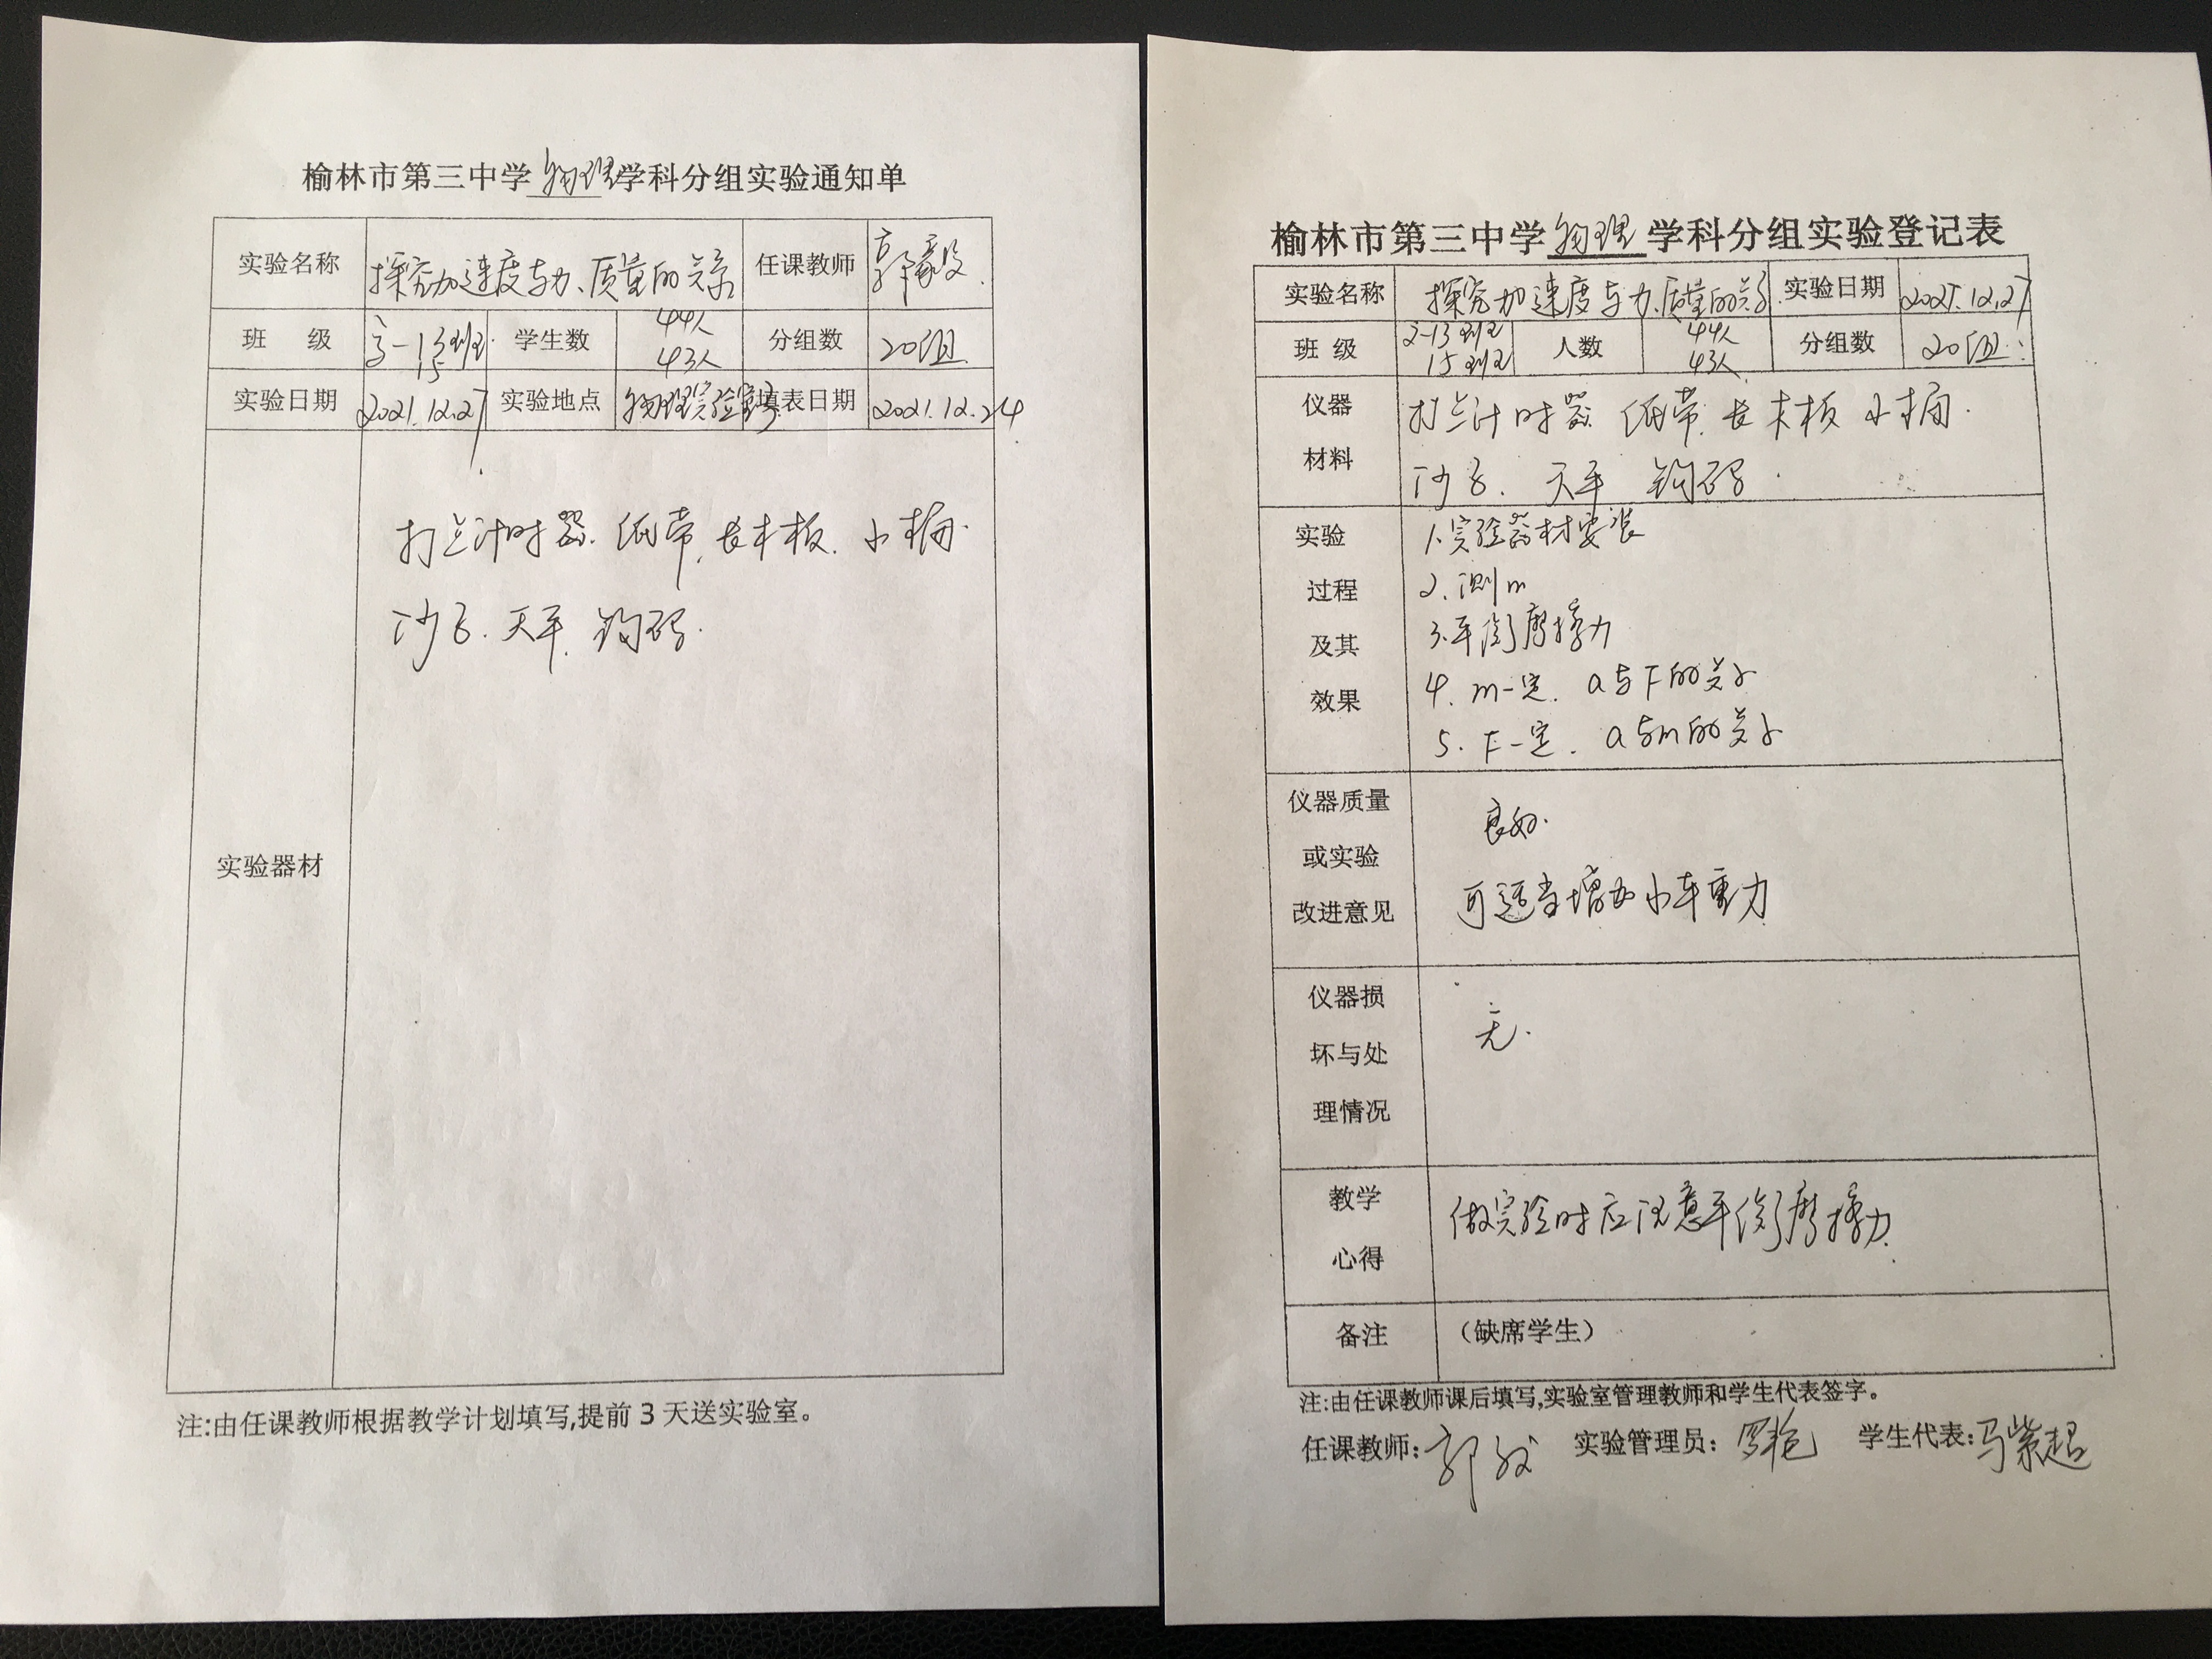 榆林市第三中学 物理 学科分组实验通知单
实验名称 探究加速度与力、质量的关系 任课教师 郭毅
班 级 高一13班 学生数 44人 分组数 20组
15 43人
实验日期 2021.12.27 实验地点 物理实验室 填表日期 2021.12.24
打点计时器 纸带 长木板 小桶
沙子 天平 钩码
实验器材
注:由任课教师根据教学计划填写,提前3天送实验室。
榆林市第三中学 物理 学科分组实验登记表
实验名称 探究加速度与力、质量的关系 实验日期 2021.12.27
班 级 13班 人数 44人 分组数 20组
15班 43人
仪器 打点计时器 纸带 长木板 小桶
材料 沙子 天平 钩码
实验 1.实验器材安装
过程 2.测m
及其 3.平衡摩擦力
效果 4.m一定 a与F的关系
5.F一定 a与m的关系
仪器质量 良好
或实验
改进意见 可适当增加小车重力
仪器损 无
坏与处
理情况
教学 做实验时应注意平衡摩擦力
心得
备注 (缺席学生)
注:由任课教师课后填写,实验室管理教师和学生代表签字。
任课教师: 郭毅 实验管理员: 罗艳 学生代表: 马紫超